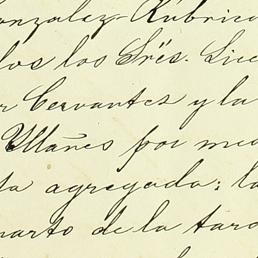 Gonzalez-Rúbrico
los los Srēs. Lice
r Cervantes y la
Yllañes por med
ta agregada; la
uarto de la tard